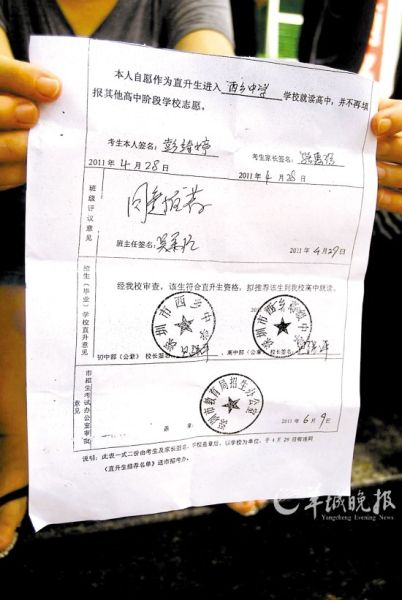 本人自愿作为直升生进入 西乡中学 学校就读高中，并不再填
报其他高中阶段学校志愿。
考生本人签名： 考生家长签名：
2011年 4月 28日 2011年 4月 28日
班级评议意见
同意推荐
班主任签名：
2011年 4月29日
招生（毕业）学校直升意见
经我校审查，该生符合直升生资格，拟推荐该生到我校高中就读。
深圳市西乡中学
深圳市西乡高级中学
初中部（公章） 校长签名： 高中部（公章） 校长签名：
市招生考试办公室审批意见
深圳市教育局招生办公室
2011年 6月 9日
说明：此表一式二份由考生及家长签名、学校盖章后，以学校为单位，于4月29日前连同
《直升生推荐名单》送市招考办。
羊城晚报
Yangcheng Evening News